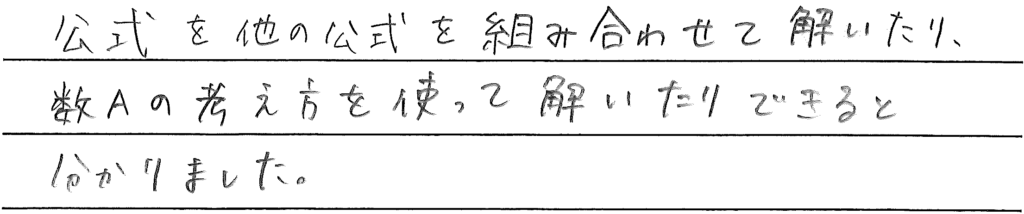 公式を他の公式を組み合わせて解いたり、
数Aの考え方を使って解いたりできると
分かりました。